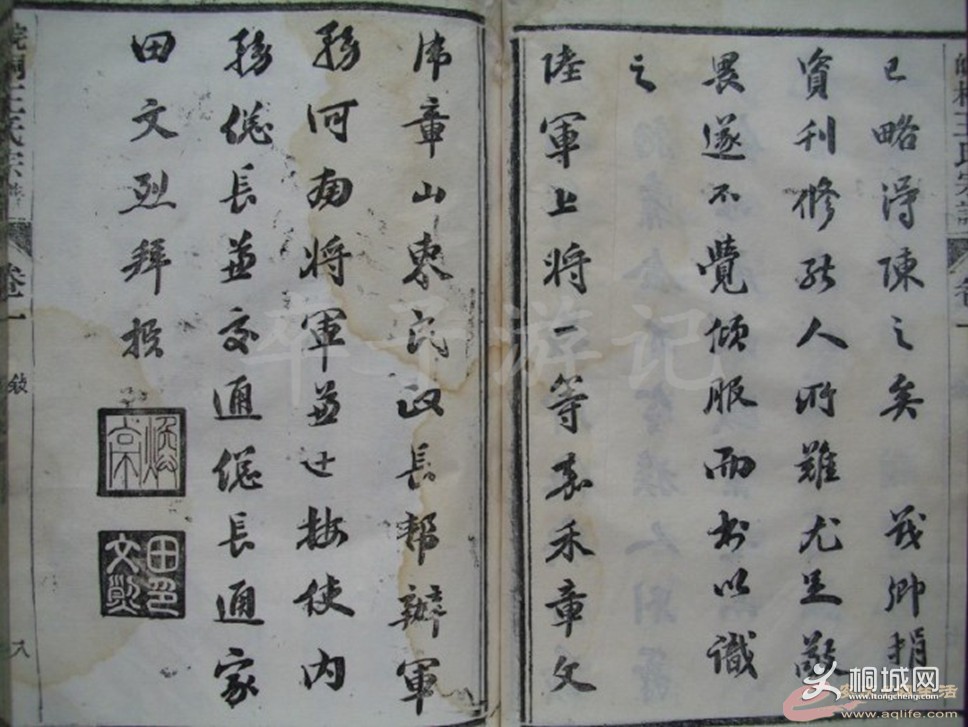 皖桐王氏宗譜
卷一
已略得陳之矣 茂卿捐
資刊修能人所難尤足敬
畏遂不覺傾服而書以識
之
陸軍上將一等嘉禾章文
虎章山東民政長幫辦軍
務河南將軍兼巡按使內
務總長兼交通總長通家
田文烈拜撰
煥亭
田文烈印
皖桐王氏宗譜
卷一
敘
九
卒子游记
桐城网
www.itongcheng.com
生活
www.aqlife.com